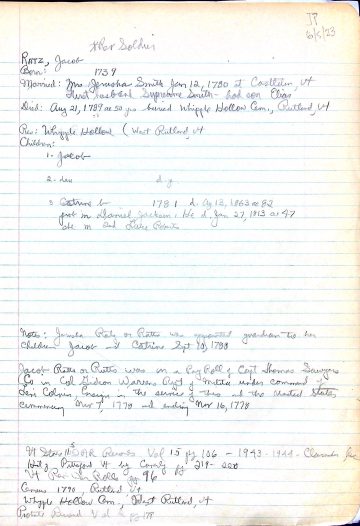 JP
6/5/23
other Soldier
RATZ, Jacob
Born: 1739
Married: Mrs Jerusha Smith Jan 12, 1780 at Castleton, Vt
First husband Smith - had son Elias
Died: Aug 21, 1789 ae 50 yrs buried Whipple Hollow Cem., Rutland, Vt
Res: Whipple Hollow (West Rutland, Vt
Children:
1. Jacob
2. d.y.
3 Catrine b 1781 d. Ag 13, 1863 ae 82
1st m Daniel Jackson. He d. Jan 27, 1813 ae 47
she m 2nd Roberts
Notes: Jerusha or Ratts was appointed guardian to her
children Jacob and Catrine Sept 10, 1789
Jacob Ratts or Rattes was on a Pay Roll of Capt Thomas Sawyers
Co in Col Gideon Warrens Regt of Militia under command of
in the service of this and the United States
commencing Nov 7, 1778 and ending Nov 16, 1778
Vt DAR Vol 15 pg 106 - 1943 - 1944 -
Hist of Vt by County pg 219-220
Vt Rev Rolls pg 96
Census 1790, Rutland Vt
Whipple Hollow Cem., West Rutland, Vt
Probate Record Vol pg 178